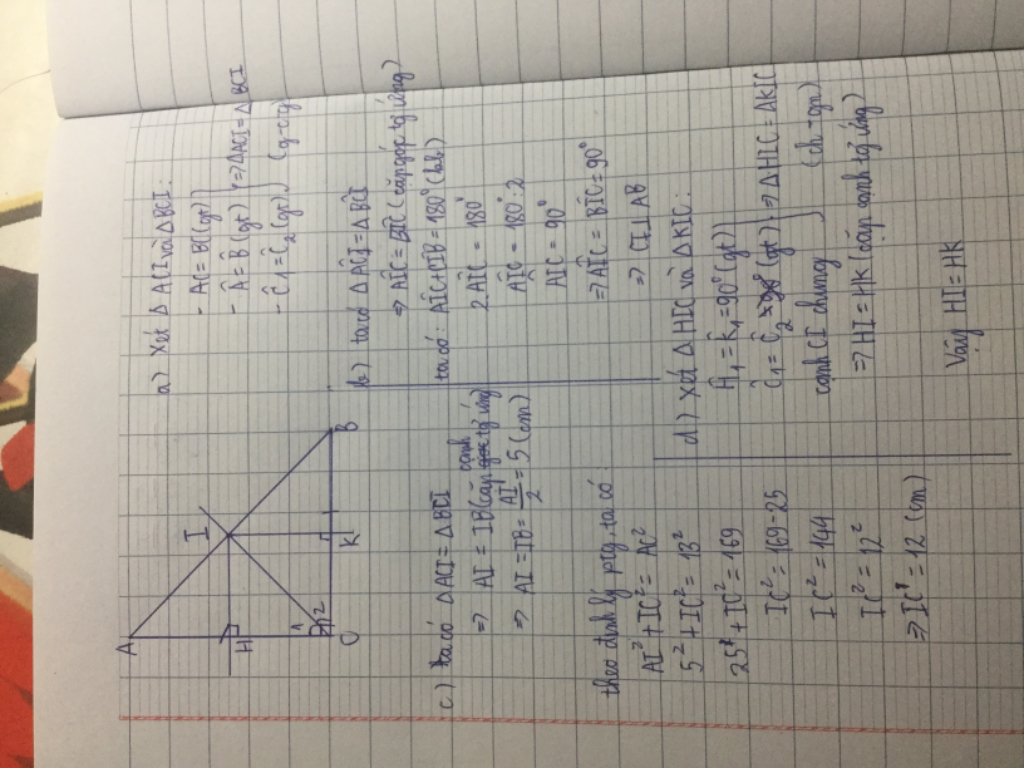 A
H
I
1
2
C
K
B
a) Xét Δ ACI và ΔBCI:
- AC = BC (gt)
- Â = B̂ (gt)
- Ĉ1 = Ĉ2 (gt)
=> ΔACI = Δ BCI
(g-c-g)
b) ta có Δ AĈI = Δ BĈI
=> AÎC = BÎC (cặp góp tg ứng)
ta có: AÎC + AÎB = 180° (kb)
2 AÎC = 180°
AÎC = 180°: 2
AIC = 90°
=> AÎC = BÎC = 90°
=> CI ⊥ AB
c) ta có ΔACI = Δ BCI
=> AI = IB (cặp cạnh tg ứng)
=> AI = IB = AI/2 = 5 (cm)
theo định lý ptg, ta có:
AI² + IC² = AC²
5² + IC² = 13²
25 + IC² = 169
IC² = 169 - 25
IC² = 144
IC² = 12²
=> IC = 12 (cm)
d) xét ΔHIC và ΔKIC:
Ĥ1 = K̂1 = 90° (gt)
Ĉ1 = Ĉ2 (gt)
cạnh CI chung
=> ΔHIC = ΔKIC
(ch - gn)
=> HI = HK (cặp cạnh tg ứng)
Vậy HI = HK